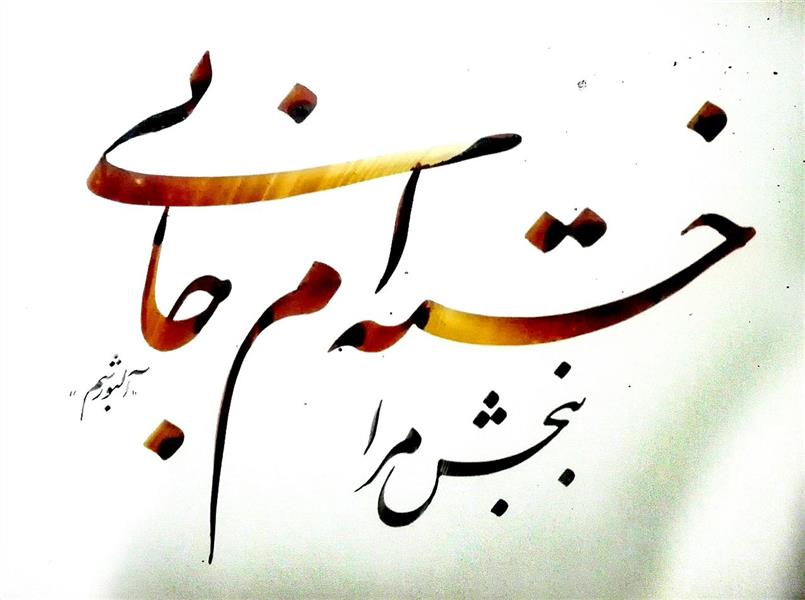 خسته ام جانی
ببخش مرا